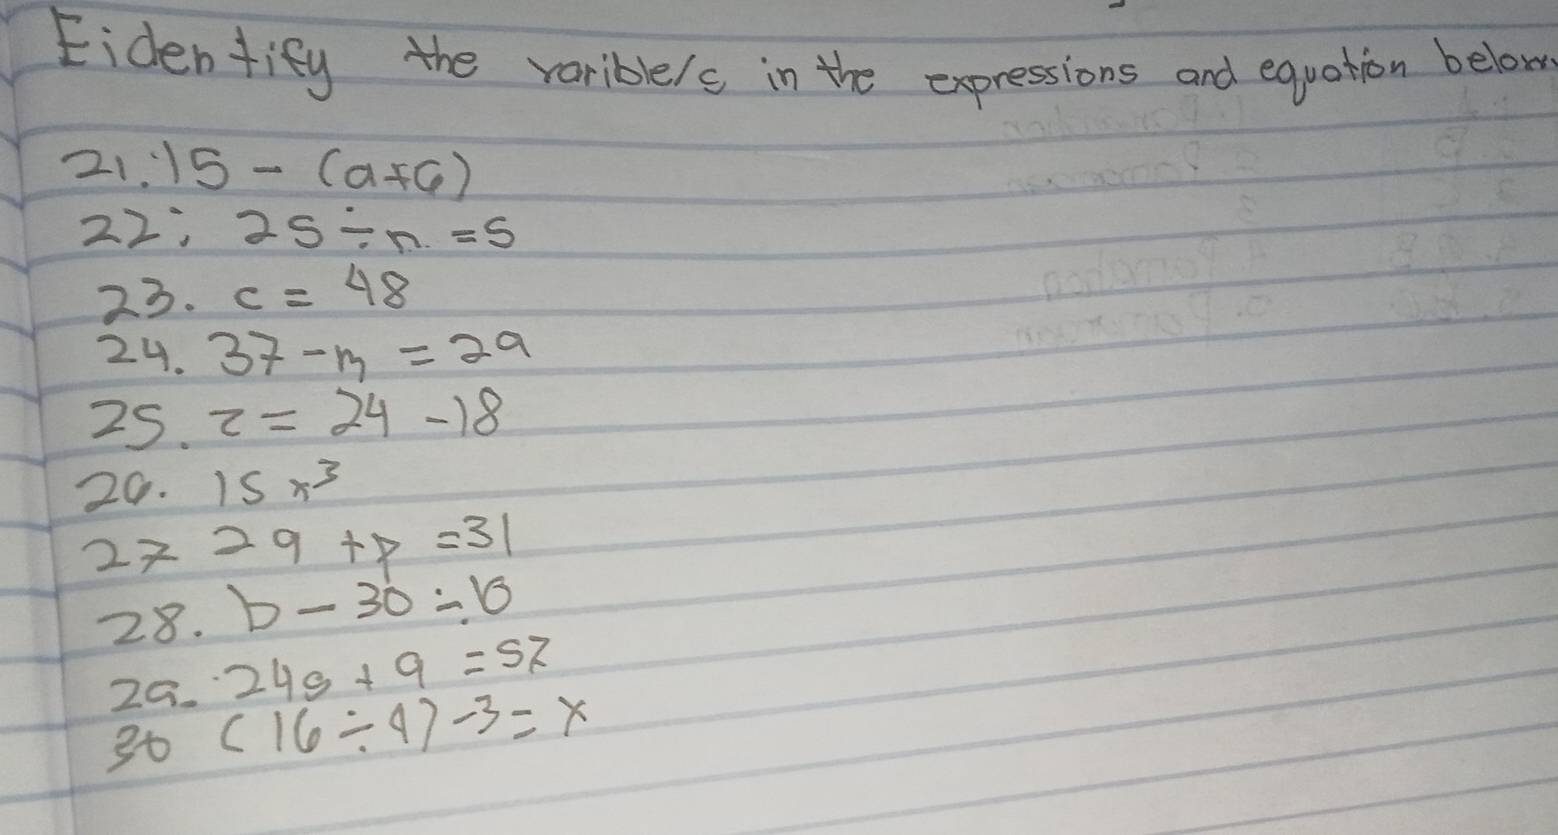 Eidentify the varible/s in the expressions and equation below.
21. 15 - (a+6)
22. 25 ÷ n = 5
23. c = 48
24. 37 - m = 29
25. z = 24 - 18
26. 15x³
27 29 + p = 31
28. b - 30 ÷ 6
29. 24s + 9 = 57
30 (16 ÷ 4) - 3 = x